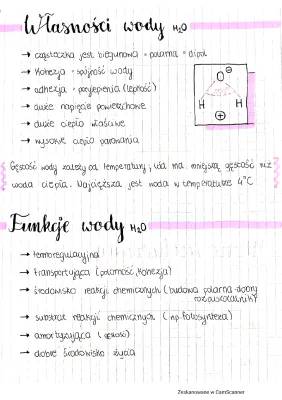 Własności wody H₂O
→ cząsteczka jest biegunowa = polarna = dipol
→ kohezja - spójność wody
→ adhezja - przylepienia (lepkość)
→ duże napięcie powierzchowe
→ duże ciepło właściwe
→ wysokie ciepło parowania
O ⊖
H H
⊕
Gęstość wody zależy od temperatury, lód ma mniejszą gęstość niż
woda ciepła. Najcięższa jest woda w temperaturze 4°C
Funkcje wody H₂O
→ termoregulacyjna
→ transportująca (polarność, kohezja)
→ środowisko reakcji chemicznych (budowa polarna - dobry
rozpuszczalnik)
→ substrat reakcji chemicznych (np. fotosynteza)
→ amortyzująca (gęstość)
→ dobre środowisko życia
Zeskanowane w CamScanner